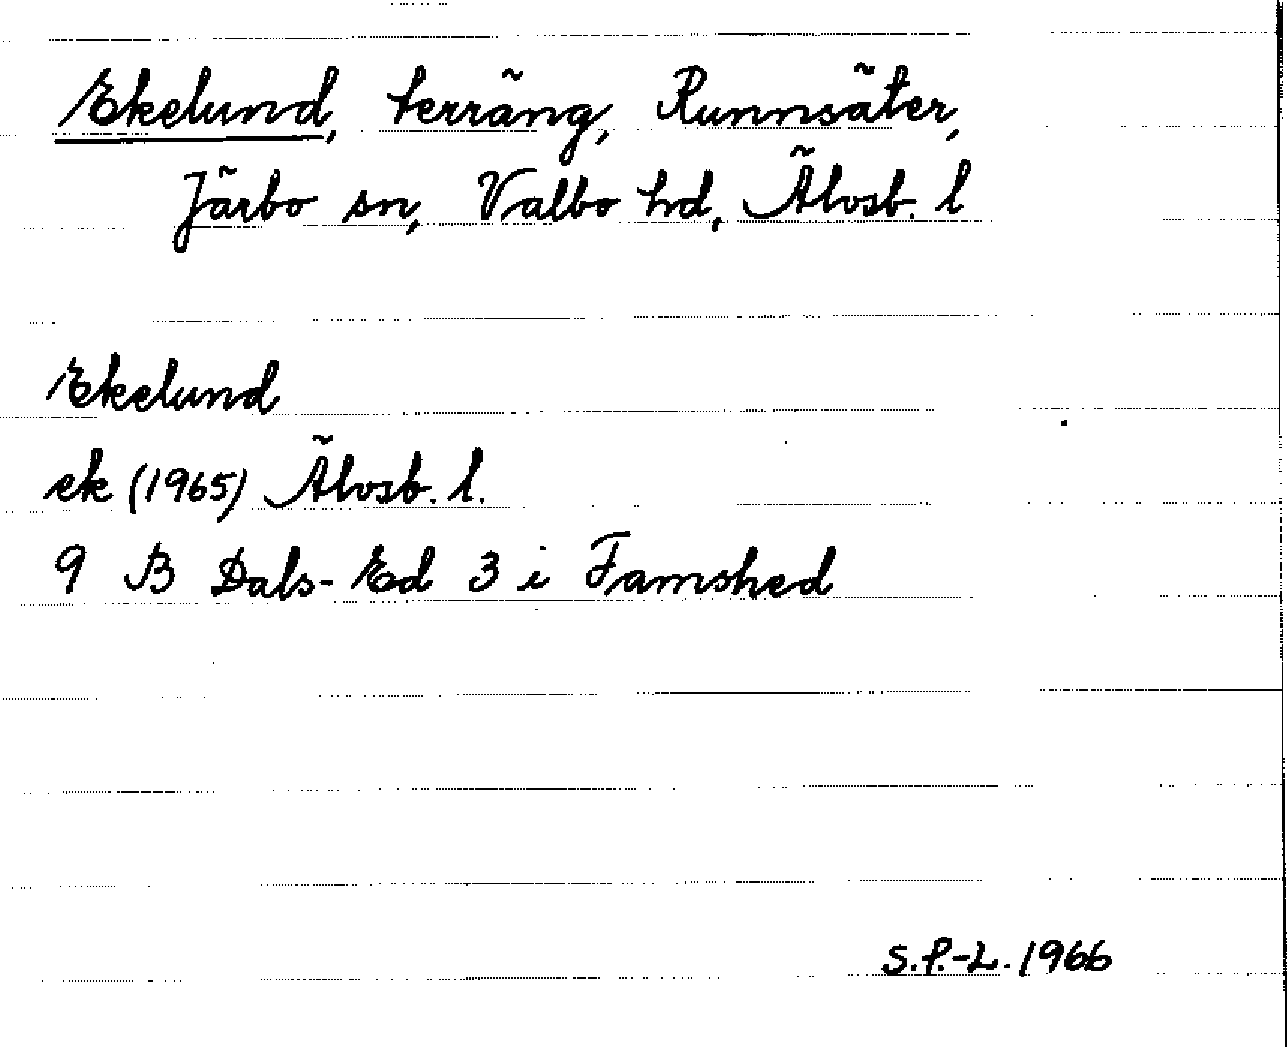 Ekelund, terräng, Runnsäter,
Järbo sn, Valbo hd, Älvsb. l
Ekelund
ek (1965) Älvsb. l.
9 B Dals-Ed 3 i Famshed
S.P.-L. 1966